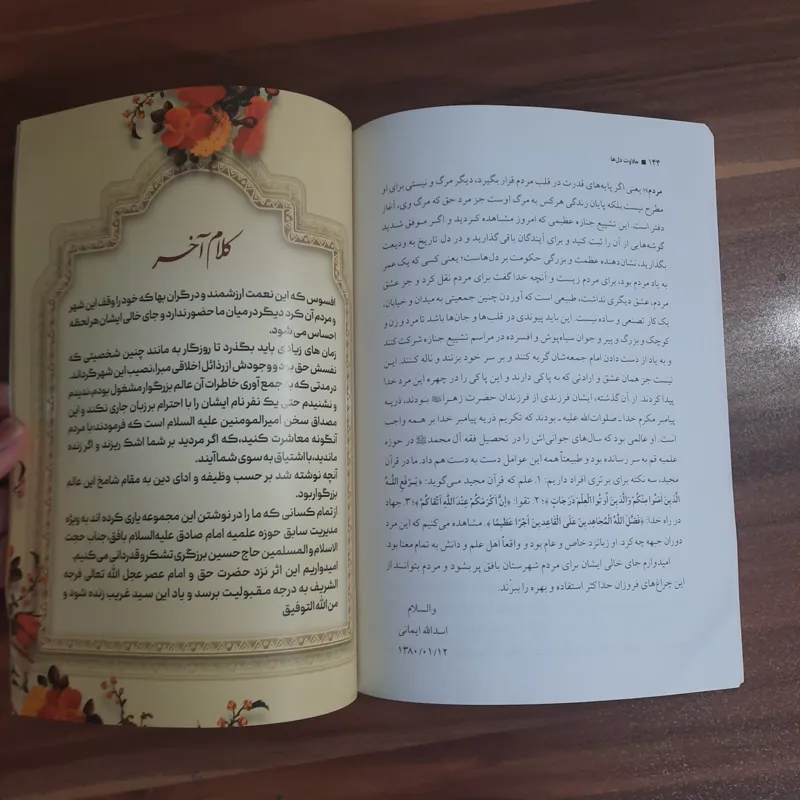 ۱۴۴ ■ حلاوت دل‌ها
مردم؛؛ یعنی اگر پایه‌های قدرت در قلب مردم قرار بگیرد، دیگر مرگ و نیستی برای او
مطرح نیست بلکه پایان زندگی هرکس به مرگ اوست جز مرد حق که مرگ وی، آغاز
دفتر است. این تشییع جنازه عظیمی که امروز مشاهده کردید و اگر موفق شدید
گوشه‌هایی از آن را ثبت کنید و برای آیندگان باقی گذارید و در دل تاریخ به ودیعت
بگذارید، نشان‌دهنده عظمت و بزرگی حکومت بر دل‌هاست؛ یعنی کسی که یک عمر
به یاد مردم بود، برای مردم زیست و آنچه خدا گفت برای مردم نقل کرد و جز عشق
مردم، عشق دیگری نداشت، طبیعی است که آوردن چنین جمعیتی به میدان و خیابان،
یک کار تصنعی و ساده نیست. باید پیوندی در قلب‌ها و جان‌ها باشد تا مرد و زن و
کوچک و بزرگ و پیر و جوان سیاه‌پوش و افسرده در مراسم تشییع جنازه شرکت کنند
و به یاد از دست دادن امام جمعه‌شان گریه کنند و بر سر خود بزنند و ناله کنند. این
نیست جز همان عشق و ارادتی که به پاکی دارند و این پاکی را در چهره این مرد خدا
پیدا کردند. از آن گذشته، ایشان فرزندی از فرزندان حضرت زهراﷺ بودند، ذریه
پیامبر مکرم خدا ـ صلوات‌الله علیه ـ بودند که تکریم ذریه پیامبر خدا بر همه واجب
است. او عالمی بود که سال‌های جوانی‌اش را در تحصیل فقه آل محمدﷺ در حوزه
علمیه قم به سر رسانده بود و طبیعتاً همه این عوامل دست به دست هم داد. ما در قرآن
مجید، سه نکته برای برتری افراد داریم: ۱. علم که قرآن مجید می‌گوید: ﴿یَرْفَعِ اللَّهُ
الَّذِینَ آمَنُوا مِنْکُمْ وَالَّذِینَ أُوتُوا الْعِلْمَ دَرَجَاتٍ﴾؛ ۲. تقوا: ﴿إِنَّ أَکْرَمَکُمْ عِنْدَ اللَّهِ أَتْقَاکُمْ﴾؛ ۳. جهاد
در راه خدا: ﴿فَضَّلَ اللَّهُ الْمُجَاهِدِینَ عَلَی الْقَاعِدِینَ أَجْرًا عَظِیمًا﴾. مشاهده می‌کنیم که این مرد
دوران جبهه چه کرد. او زبانزد خاص و عام بود و واقعاً اهل علم و دانش به تمام معنا بود.
امیدوارم جای خالی ایشان برای مردم شهرستان بافق پر بشود و مردم بتوانند از
این چراغ‌های فروزان حداکثر استفاده و بهره را ببرند.
والسلام
اسدالله ایمانی
۱۳۸۰/۰۱/۱۲
کلام آخر
افسوس که این نعمت ارزشمند و درگران بها که خود را وقف این شهر
و مردم آن کرد دیگر در میان ما حضور ندارد و جای خالی ایشان هر لحظه
احساس می شود.
زمان های زیادی باید بگذرد تا روزگار به مانند چنین شخصیتی که
نفسش حق بود و وجودش از رذائل اخلاقی مبرا، نصیب این شهر گرداند.
در مدتی که با جمع آوری خاطرات آن عالم بزرگوار مشغول بودم، ندیدم
و نشنیدم حتی یک نفر نام ایشان را با احترام بر زبان جاری نکند و این
مصداق سخن امیرالمومنین علیه السلام است که فرمودند؛ با مردم
آنگونه معاشرت کنید، که اگر مردید بر شما اشک ریزند و اگر زنده
ماندید، با اشتیاق به سوی شما آیند.
آنچه نوشته شد بر حسب وظیفه و ادای دین به مقام شامخ این عالم
بزرگوار بود.
از تمام کسانی که ما را در نوشتن این مجموعه یاری کرده اند به ویژه
مدیریت سابق حوزه علمیه امام صادق علیه‌السلام بافق جناب حجت
الاسلام و المسلمین حاج حسین برزگری تشکر و قدردانی می کنیم.
امیدواریم این اثر نزد حضرت حق و امام عصر عجل الله تعالی فرجه
الشریف به درجه مقبولیت برسد و یاد این سید غریب زنده شود و
من الله التوفیق